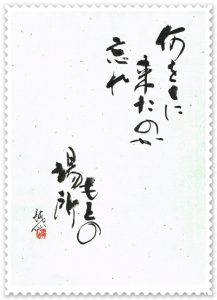 何をしに
来たのか
忘れ
もとの
場所